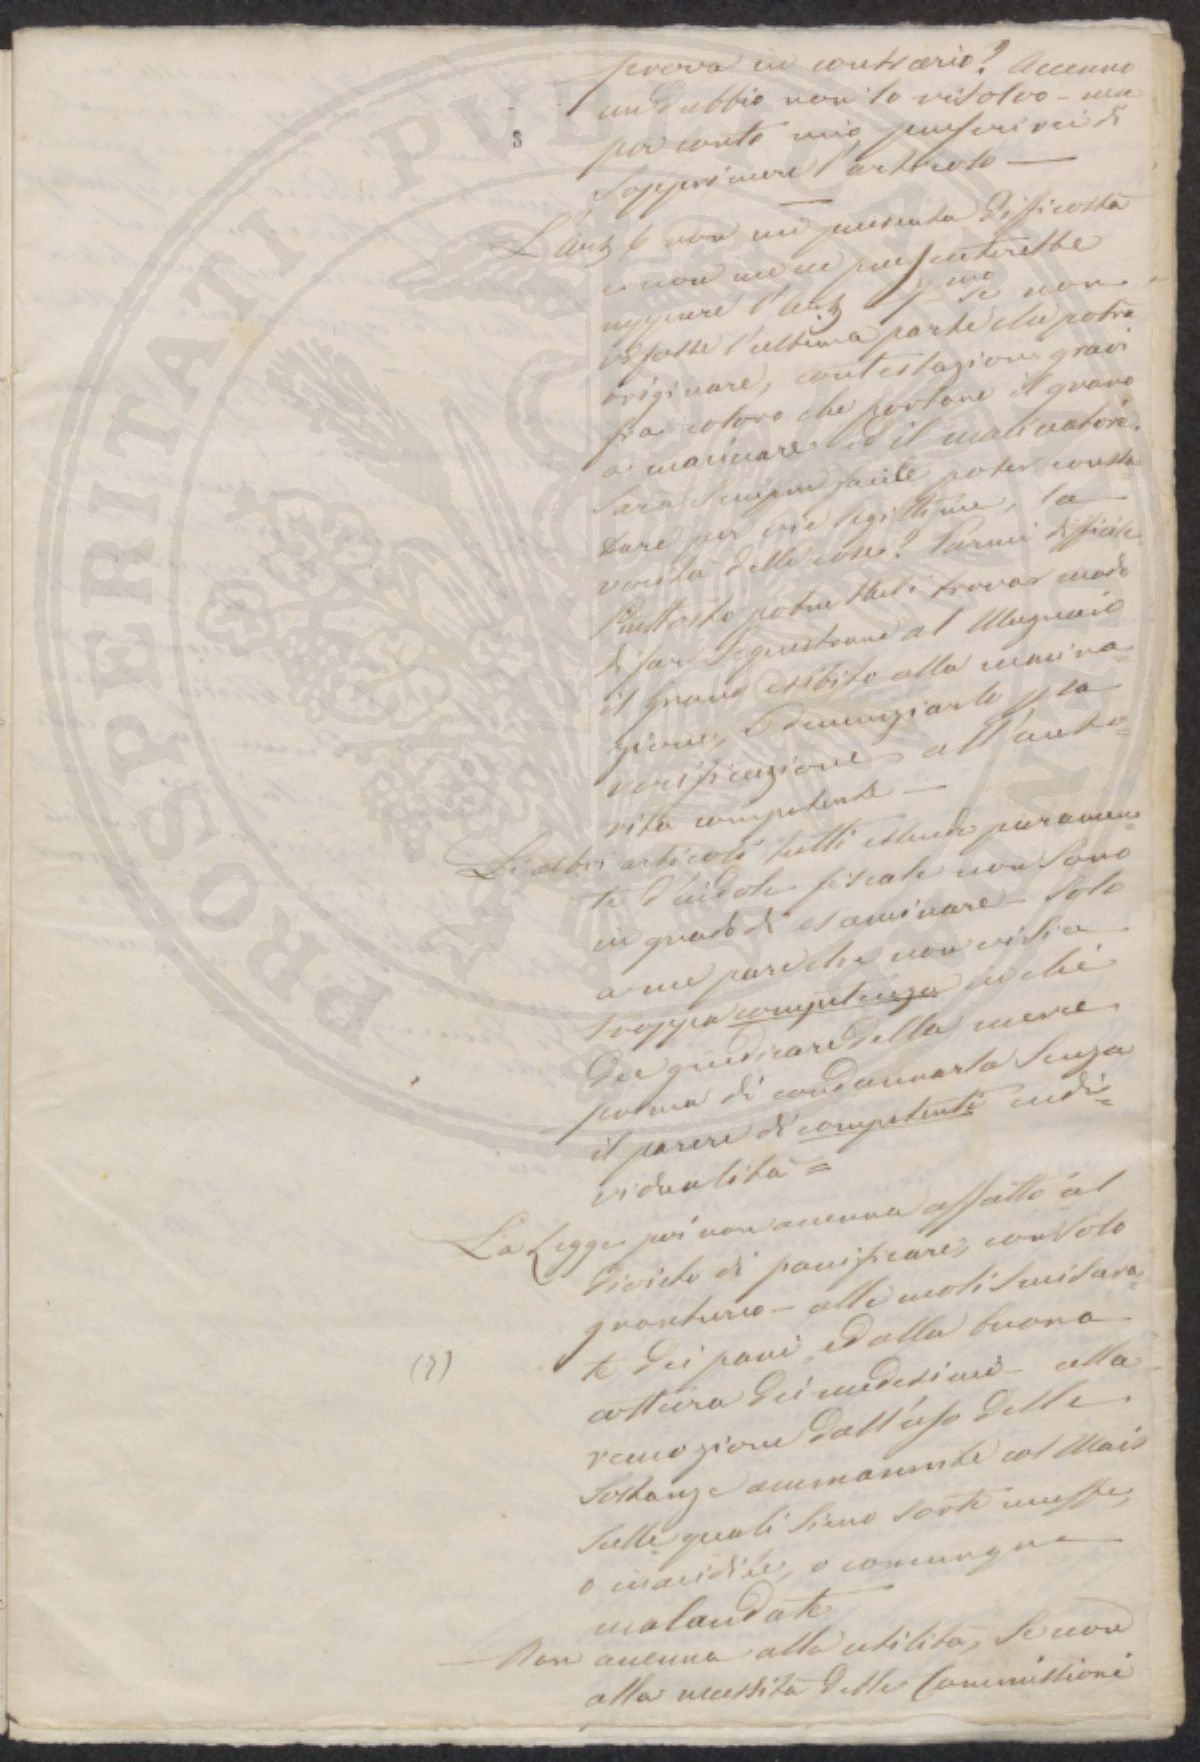 prova in contrario? Accenno
un dubbio non lo risolvo - ma
per conto mio, preferirei di
sopprimere l'articolo —
L'Art 6 non mi presenta difficoltà
e non me ne presenterebbe
neppure l'Art 7mo se non
vi fosse l'ultima parte che potrà
originare, contestazioni gravi
fra coloro che portano il grano
a macinare ed il macinatore.
Sarà sempre facile poter consta=
tare per vie legittime, la
verità delle cose? Parmi difficile
Piuttosto potrebbesi trovar modo
di far sequestrare al Mugnaio
il grano esibito alla macina=
zione, e denunziarlo p la
verificazione all'auto=
rità competente —
Gli altri articoli tutti essendo puramen=
te d'indole fiscale non sono
in grado di esaminare - Solo
a me pare che non vi sia
troppa competenza in chi
dee giudicare della merce
prima di condannarla senza
il parere di competenti indi=
vidualità =
La Legge poi non accenna affatto al
divieto di panificare, con solo
granturco - alle moli smisura=
te dei pani, ed alla buona
cottura dei medesimi - alla
remozione dall'uso delle
sostanze ammannite col Mais
sulle quali sieno sorte muffe,
o inacidite, o comunque
malandate —
Non accenna alla utilità, se non
alla necessità delle Commissioni
(?)
8
PROSPERITATI PUBLICAE